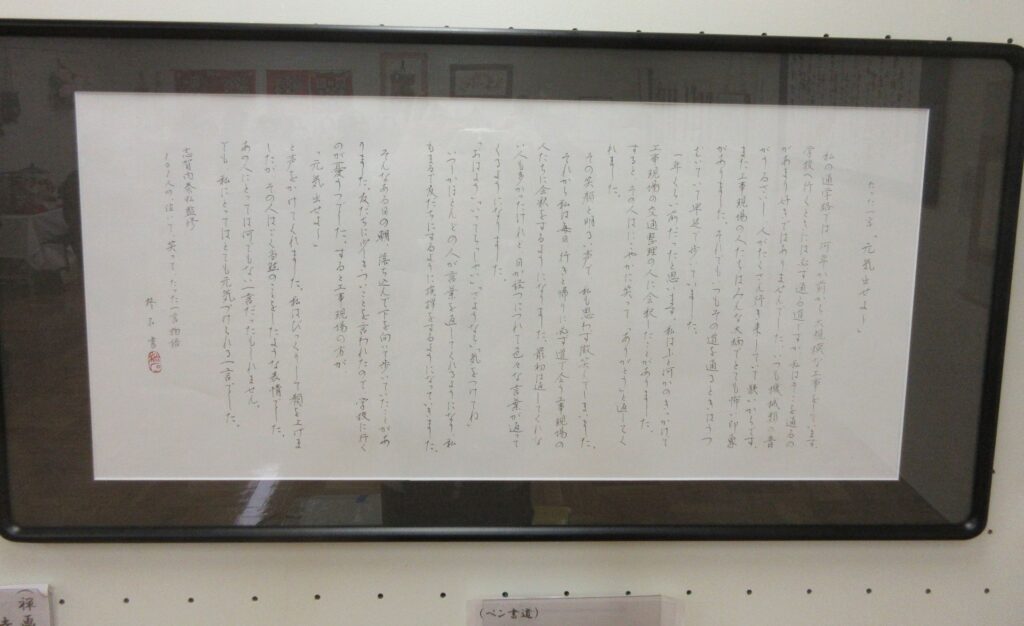 たった一言、元気出せよ～
私の通学路では、何年か前から大規模な工事をしています。
学校へ行くときには必ず通る道ですが、私はそこを通るの
があまり好きではありませんでした。いつも機械類の音
がうるさいし、人がたくさん行き来していて狭いからです。
また工事現場の人たちはみんな大柄でとても怖い印象
がありました。それでも、いつもその道を通るときはうつ
むいていて早足で歩いていました。
一年くらい前だったと思います。私はふと何がのきっかけで
工事現場の交通整理の人に会釈したことがありました。
すると、その人はにこやかに笑って、「ありがとう」と返してく
れました。
その笑顔と明るい声で、私も思わず微笑んでしまいました。
それから私は毎日、行きと帰りに必ず道で会う工事現場の
人たちに会釈をするようになりました。最初は返してくれな
い人も多かったけれど、日が経つにつれて色々な言葉が返って
くるようになりました。
「おはよう」「いってらっしゃい」「さようなら」「気をつけてね」
いつからかほとんどの人が言葉を返してくれるようになり、私
もまるで友だちにするように挨拶をするようになっていきました。
そんなある日の朝、落ち込んで下を向いて歩いていたことがあ
りました。友だちに少しきついことを言われたので、学校に行く
のが憂うつでした。すると工事現場の方が
「元気出せよ～」
と声をかけてくれました。私はびっくりして顔を上げま
したが、その人はごく当然のことをしたような表情でした。
あの人にとっては何でもない一言だったかもしれません。
でも、私にとってはとても元気づけられる一言でした。
志賀内泰弘監修
1001人の泣いて、笑って、たった一言物語
書
(ペン書道)
(禅画